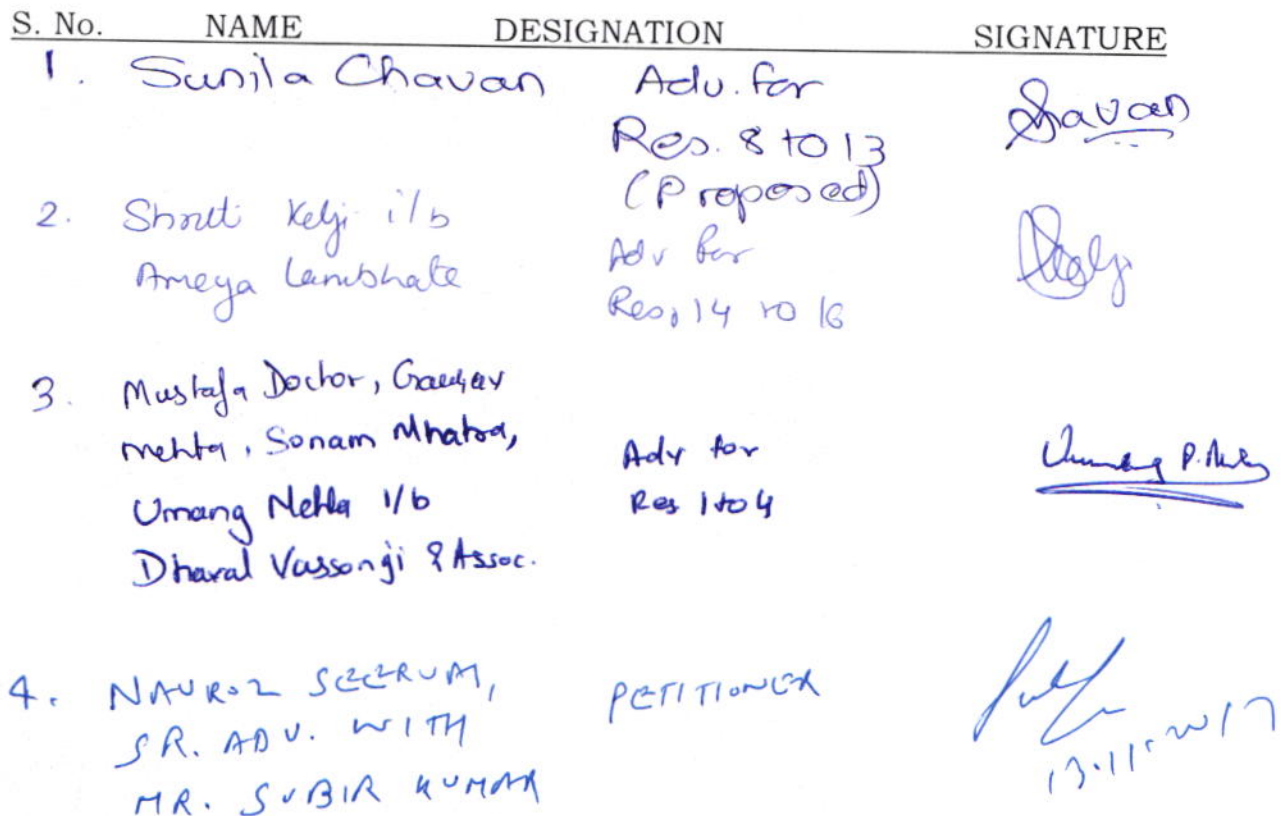 S. No. NAME DESIGNATION SIGNATURE
1. Sunila Chavan Adv. for
Res. 8 to 13
(Proposed)
Savan
2. Shruti Kelji i/b
Ameya Lambhate
Adv for
Res. 14 to 16
3. Mustafa Doctor, Gaurav
Mehta, Sonam Mhatre,
Umang Mehta i/b
Dhaval Vassonji & Assoc.
Adv for
Res 1 to 4
Umang P.
4. NAUROZ SEERVAI,
SR. ADV. WITH
MR. SUBIR KUMAR
PETITIONER
13.11.2017